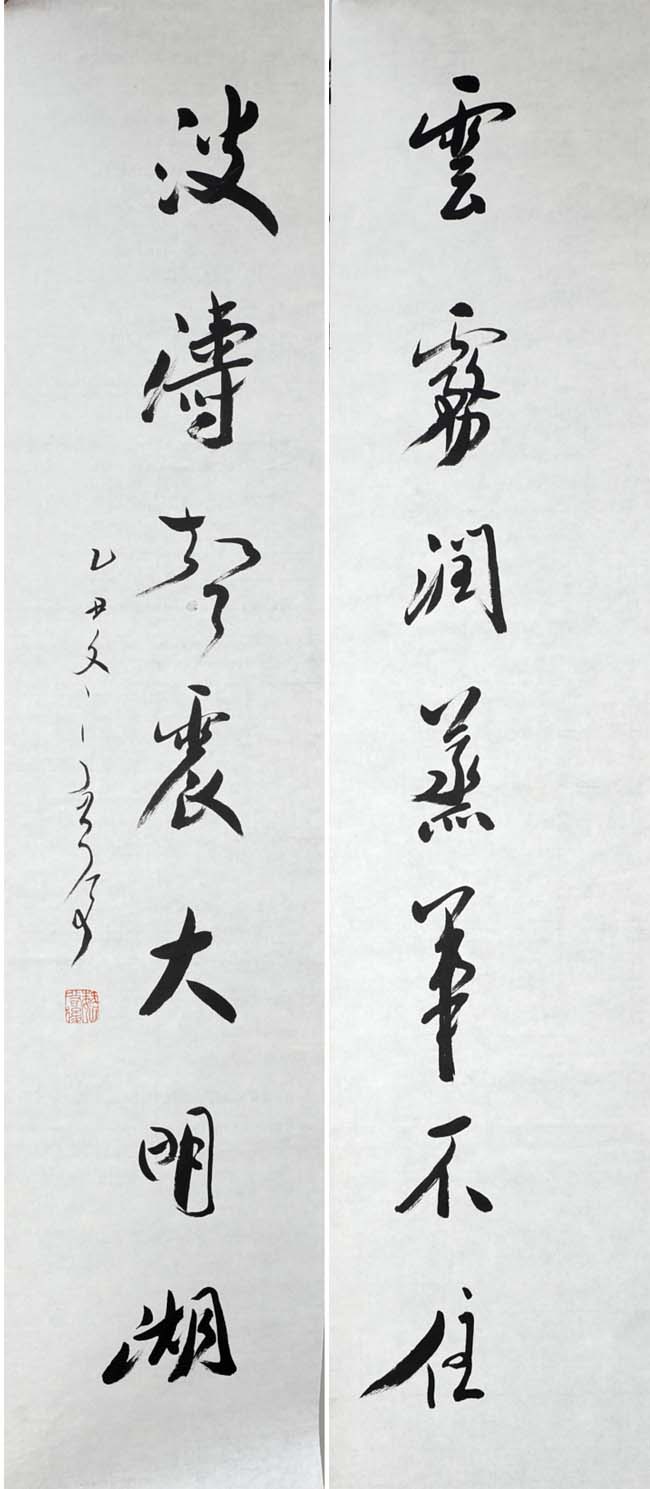 雲霧潤蒸華不住
波濤聲震大明湖
乙丑